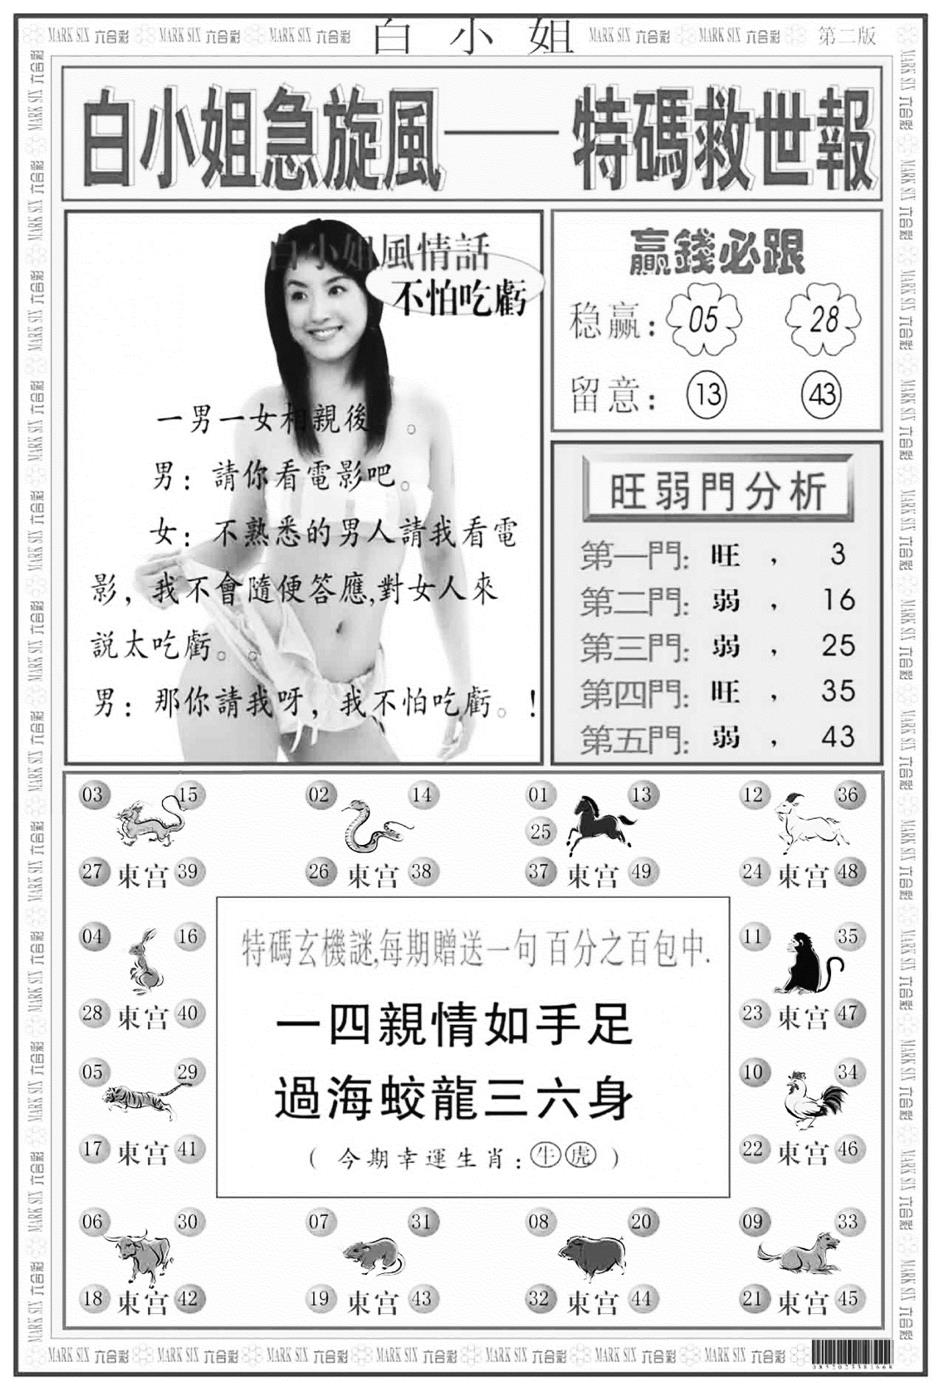 MARK SIX 六合彩 MARK SIX 六合彩 MARK SIX 六合彩 白小姐 MARK SIX 六合彩 MARK SIX 六合彩 第二版
白小姐急旋風——特碼救世報
白小姐風情話
不怕吃虧
一男一女相親後。。
男：請你看電影吧。
女：不熟悉的男人請我看電
影，我不會隨便答應,對女人來
説太吃虧。。
男：那你請我呀，我不怕吃虧。！
贏錢必跟
稳赢：05 28
留意：13 43
旺弱門分析
第一門: 旺 ， 3
第二門: 弱 ， 16
第三門: 弱 ， 25
第四門: 旺 ， 35
第五門: 弱 ， 43
03 15 02 14 01 13 12 36
25
27 東宫 39 26 東宫 38 37 東宫 49 24 東宫 48
04 16
28 東宫 40
05 29
17 東宫 41
特碼玄機謎,每期贈送一句 百分之百包中.
一四親情如手足
過海蛟龍三六身
( 今期幸運生肖：牛虎 )
11 35
23 東宫 47
10 34
22 東宫 46
06 30 07 31 08 20 09 33
18 東宫 42 19 東宫 43 32 東宫 44 21 東宫 45
MARK SIX 六合彩 MARK SIX 六合彩 MARK SIX 六合彩 MARK SIX 六合彩 MARK SIX 六合彩 MARK SIX 六合彩 MARK SIX 六合彩